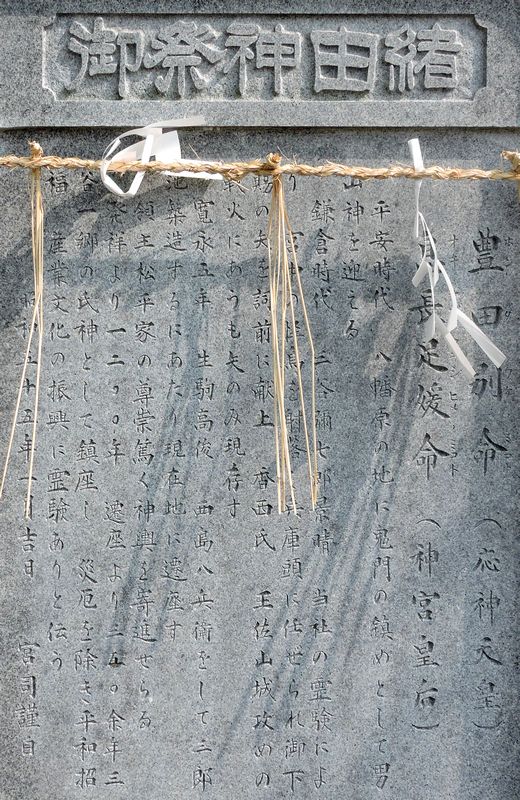 御祭神由緒
豊田別命 (応神天皇)
長足媛命 (神宮皇后)
平安時代 八幡原の地に鬼門の鎮めとして男
山神を迎える
鎌倉時代 三谷彌七郎景晴 当社の霊験によ
り 怪鳥を射落 兵庫頭に任せられ御下
賜の矢を詞前に献上 香西氏 王佐山城攻めの
戦火にあうも矢のみ現存す
寛永五年 生駒高俊 西島八兵衛をして三郎
池築造するにあたり現在地に遷座す
領主松平家の尊崇篤く神輿を寄進せらる
発祥より一二〇〇年 遷座より三五〇余年三
谷一郷の氏神として鎮座し 災厄を除き平和招
福 産業文化の振興に霊験ありと伝う
昭和五十五年一月吉日 宮司謹白